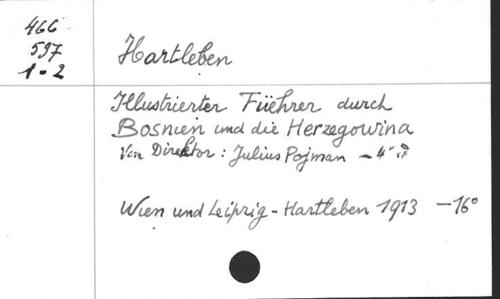 466
597
1-2
Hartleben
Illustrierter Füehrer durch
Bosnien und die Herzegowina
Von Direktor: Julius Pojman - 4"
Wien und Leipzig - Hartleben 1913 - 16°